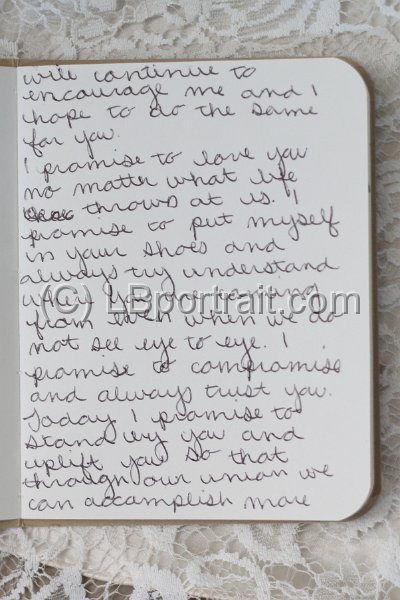 will continue to
encourage me and I
hope to do the same
for you.
I promise to love you
no matter what life
throws at us. I
promise to put myself
in your shoes and
always try understand
where you are coming
from even when we do
not see eye to eye. I
promise to compromise
and always trust you.
Today I promise to
stand by you and
uplift you so that
through our union we
can accomplish more
(C) LBportrait.com